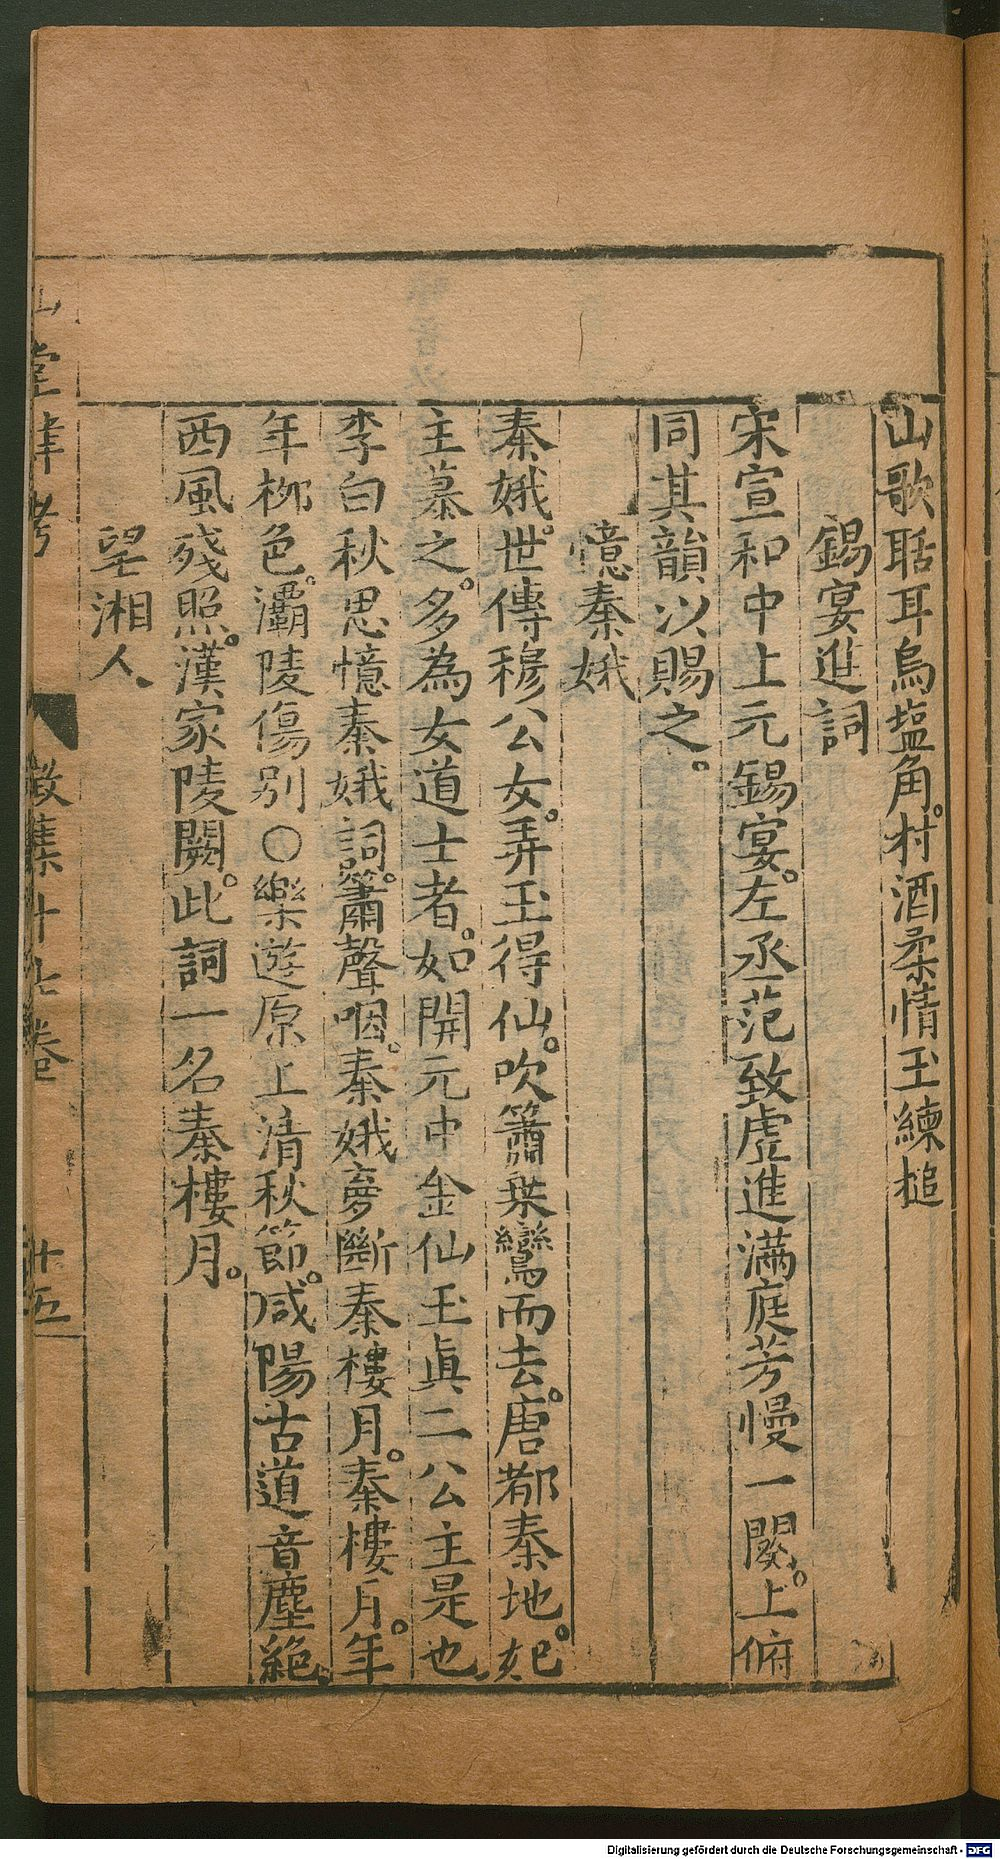 山歌聒耳烏塩角。村酒柔情玉練槌
錫宴進詞
宋宣和中上元錫宴。左丞范致虛進滿庭芳慢一闋。上俯
同其韻以賜之。
憶秦娥
秦娥。世傳穆公女。弄玉得仙。吹簫乗鸞而去。唐都秦地。妃
主慕之。多為女道士者。如開元中金仙玉眞二公主是也。
李白秋思憶秦娥詞。簫聲咽。秦娥夢斷秦樓月。秦樓月。年
年柳色。灞陵傷別〇樂遊原上清秋節。咸陽古道音塵絶。
西風殘照。漢家陵闕。此詞一名秦樓月。
望湘人
山堂肆考
徵集十七卷
十五
Digitalisierung gefördert durch die Deutsche Forschungsgemeinschaft - DFG